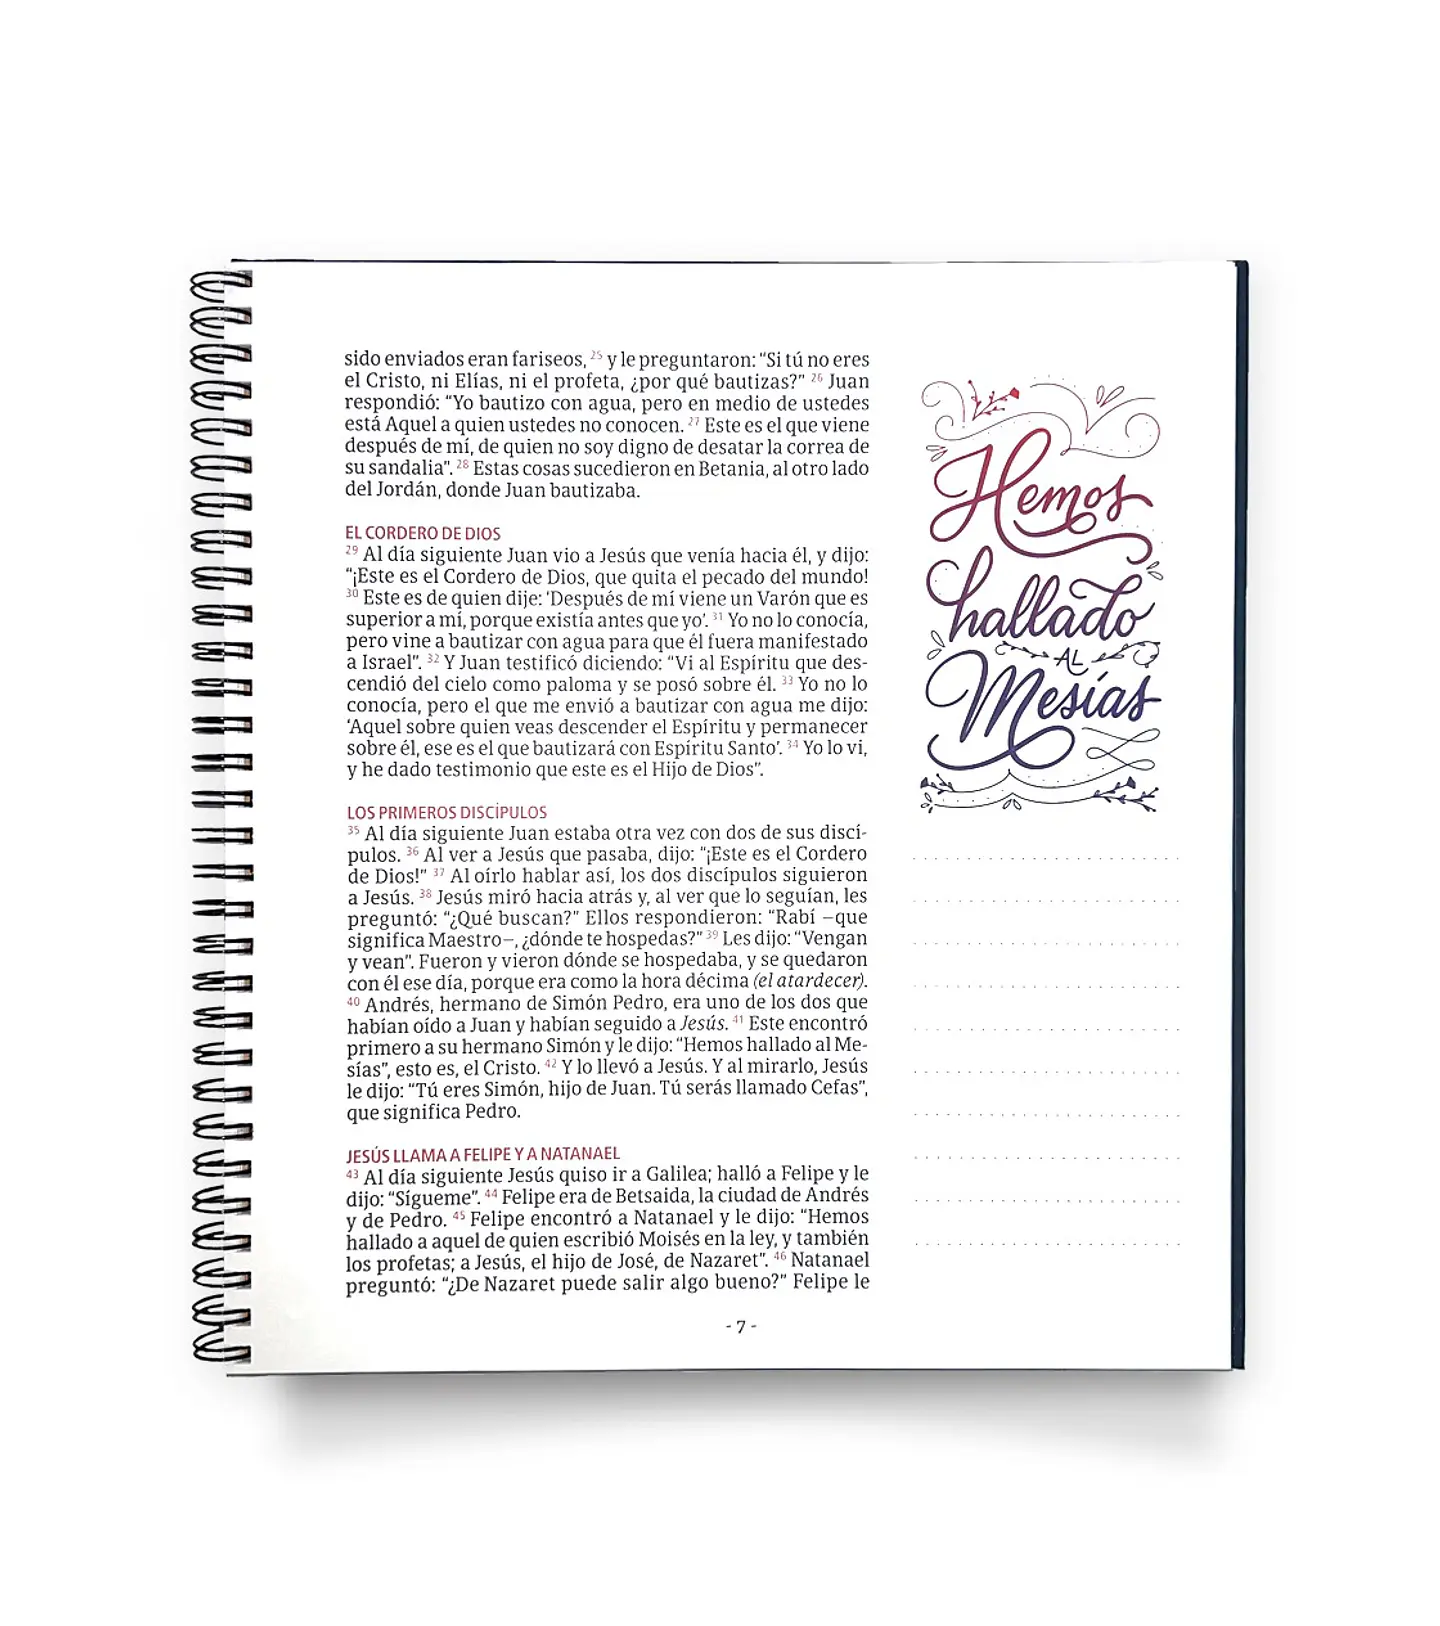 sido enviados eran fariseos, 25 y le preguntaron: “Si tú no eres
el Cristo, ni Elías, ni el profeta, ¿por qué bautizas?” 26 Juan
respondió: “Yo bautizo con agua, pero en medio de ustedes
está Aquel a quien ustedes no conocen. 27 Este es el que viene
después de mí, de quien no soy digno de desatar la correa de
su sandalia”. 28 Estas cosas sucedieron en Betania, al otro lado
del Jordán, donde Juan bautizaba.
EL CORDERO DE DIOS
29 Al día siguiente Juan vio a Jesús que venía hacia él, y dijo:
“¡Este es el Cordero de Dios, que quita el pecado del mundo!
30 Este es de quien dije: ‘Después de mí viene un Varón que es
superior a mí, porque existía antes que yo’. 31 Yo no lo conocía,
pero vine a bautizar con agua para que él fuera manifestado
a Israel”. 32 Y Juan testificó diciendo: “Vi al Espíritu que des-
cendió del cielo como paloma y se posó sobre él. 33 Yo no lo
conocía, pero el que me envió a bautizar con agua me dijo:
‘Aquel sobre quien veas descender el Espíritu y permanecer
sobre él, ese es el que bautizará con Espíritu Santo’. 34 Yo lo vi,
y he dado testimonio que este es el Hijo de Dios”.
LOS PRIMEROS DISCÍPULOS
35 Al día siguiente Juan estaba otra vez con dos de sus discí-
pulos. 36 Al ver a Jesús que pasaba, dijo: “¡Este es el Cordero
de Dios!” 37 Al oírlo hablar así, los dos discípulos siguieron
a Jesús. 38 Jesús miró hacia atrás y, al ver que lo seguían, les
preguntó: “¿Qué buscan?” Ellos respondieron: “Rabí –que
significa Maestro–, ¿dónde te hospedas?” 39 Les dijo: “Vengan
y vean”. Fueron y vieron dónde se hospedaba, y se quedaron
con él ese día, porque era como la hora décima (el atardecer).
40 Andrés, hermano de Simón Pedro, era uno de los dos que
habían oído a Juan y habían seguido a Jesús. 41 Este encontró
primero a su hermano Simón y le dijo: “Hemos hallado al Me-
sías”, esto es, el Cristo. 42 Y lo llevó a Jesús. Y al mirarlo, Jesús
le dijo: “Tú eres Simón, hijo de Juan. Tú serás llamado Cefas”,
que significa Pedro.
JESÚS LLAMA A FELIPE Y A NATANAEL
43 Al día siguiente Jesús quiso ir a Galilea; halló a Felipe y le
dijo: “Sígueme”. 44 Felipe era de Betsaida, la ciudad de Andrés
y de Pedro. 45 Felipe encontró a Natanael y le dijo: “Hemos
hallado a aquel de quien escribió Moisés en la ley, y también
los profetas; a Jesús, el hijo de José, de Nazaret”. 46 Natanael
preguntó: “¿De Nazaret puede salir algo bueno?” Felipe le
- 7 -
Hemos
hallado
AL
Mesías